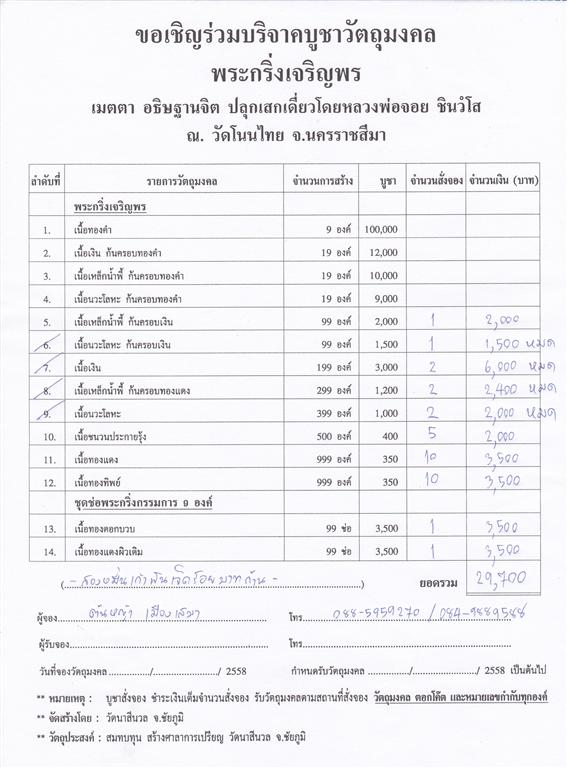 ขอเชิญร่วมบริจาคบูชาวัตถุมงคล
พระกริ่งเจริญพร
เมตตา อธิษฐานจิต ปลุกเสกเดี่ยวโดยหลวงพ่อจอย ชินวํโส
ณ. วัดโนนไทย จ.นครราชสีมา
ลำดับที่ รายการวัตถุมงคล จำนวนการสร้าง บูชา จำนวนสั่งจอง จำนวนเงิน (บาท)
พระกริ่งเจริญพร
1. เนื้อทองคำ 9 องค์ 100,000
2. เนื้อเงิน ก้นครอบทองคำ 19 องค์ 12,000
3. เนื้อเหล็กน้ำพี้ ก้นครอบทองคำ 19 องค์ 10,000
4. เนื้อนวะโลหะ ก้นครอบทองคำ 19 องค์ 9,000
5. เนื้อเหล็กน้ำพี้ ก้นครอบเงิน 99 องค์ 2,000 1 2,000
6. เนื้อนวะโลหะ ก้นครอบเงิน 99 องค์ 1,500 1 1,500 หมด
7. เนื้อเงิน 199 องค์ 3,000 2 6,000 หมด
8. เนื้อเหล็กน้ำพี้ ก้นครอบทองแดง 299 องค์ 1,200 2 2,400 หมด
9. เนื้อนวะโลหะ 399 องค์ 1,000 2 2,000 หมด
10. เนื้อชนวนประกายรุ้ง 500 องค์ 400 5 2,000
11. เนื้อทองแดง 999 องค์ 350 10 3,500
12. เนื้อทองทิพย์ 999 องค์ 350 10 3,500
ชุดช่อพระกริ่งกรรมการ 9 องค์
13. เนื้อทองดอกบวบ 99 ช่อ 3,500 1 3,500
14. เนื้อทองแดงผิวเดิม 99 ช่อ 3,500 1 3,500
(- สองหมื่นเก้าพันเจ็ดร้อยบาทถ้วน -) ยอดรวม 29,700
ผู้จอง ต้นหญ้า เมืองเสมา โทร 088-5959270 / 084-9889588
ผู้รับจอง โทร
วันที่จองวัตถุมงคล ................/................/ 2558 กำหนดรับวัตถุมงคล ................/................/ 2558 เป็นต้นไป
** หมายเหตุ : บูชาสั่งจอง ชำระเงินเต็มจำนวนสั่งจอง รับวัตถุมงคลตามสถานที่สั่งจอง วัตถุมงคล ตอกโค๊ต และหมายเลขกำกับทุกองค์
** จัดสร้างโดย : วัดนาสีนวล จ.ชัยภูมิ
** วัตถุประสงค์ : สมทบทุน สร้างศาลาการเปรียญ วัดนาสีนวล จ.ชัยภูมิ